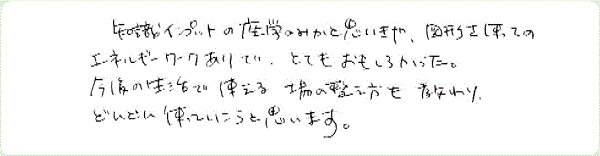 知識インプットの座学のみかと思いきや、図形を使っての
エネルギーワークありで、とてもおもしろかった。
今後の生活で使える場の整え方も教わり、
どんどん使っていこうと思います。